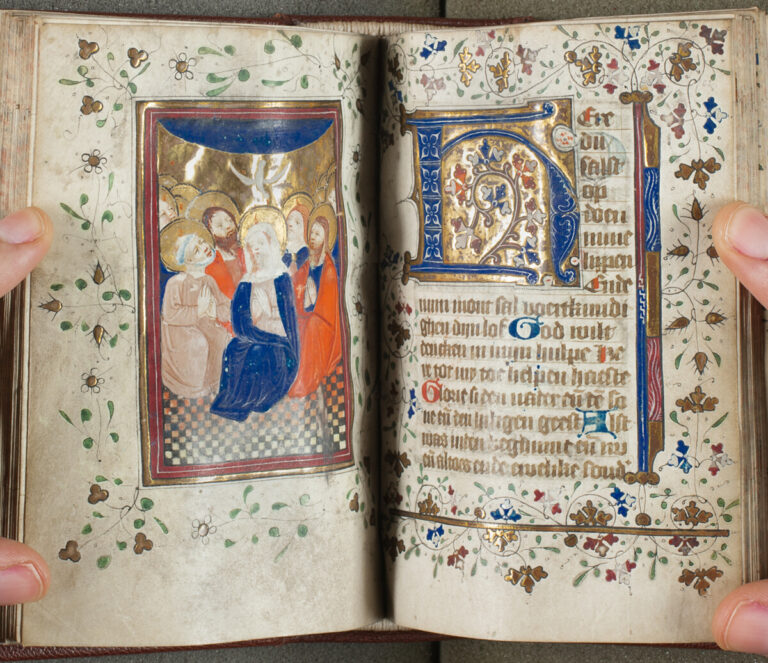 Here
du
sulst
op
doen
mine
lippen
Ende
minn mont sal voertkundi
ghen dijn lof God wilt
dencken in mijn hulpe He
re tot my toe helpen haeste
Glorie si den uader en de so
ne en den heiligen geest Alst
was inden beghinne en nu
en altoes en de ewelike sond'